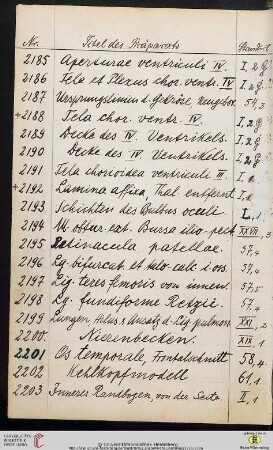 Nr. Titel des Präparats Standort
2185 Aperturae ventriculi IV. I, 2 g
2186 Tela et Plexus chor. ventr. IV I, 2 g
2187 Ursprungslinien d. Gekröse, neugeb. 54,3
+2188 Tela chor. ventr. IV. I, 2
2189 Decke des IV. Ventrikels. I, 2
2190 Decke des IV. Ventrikels. I, 2 g
2191 Tela chorioidea ventriculi III. I,
+2192 Lamina affixa, Thal. entfernt I,
2193 Schichten des Bulbus oculi. L, 1
2194 M. obtur. ext. Bursa ilio-pect. XXVII, 3
2195 Retinacula patellae. 57,4
2196 Lig. bifurcat. et talo-calc. i. os. 57,4
2197 Lig. teres femoris von innen. 57,5
2198 Lig. fundiforme Retzii. 57,4
2199 Lungen, Hilus & Ansatz d. Lig. pulmon. XXI, 2
2200 Nierenbecken. XIX, 1
2201 Os temporale, Frontalschnitt 58,4
2202 Kehlkopfmodell 61,1
2203 Innerer Randbogen, von der Seite II, 1
UNIVERSITÄTS-
BIBLIOTHEK
HEIDELBERG
© Universitätsbibliothek Heidelberg